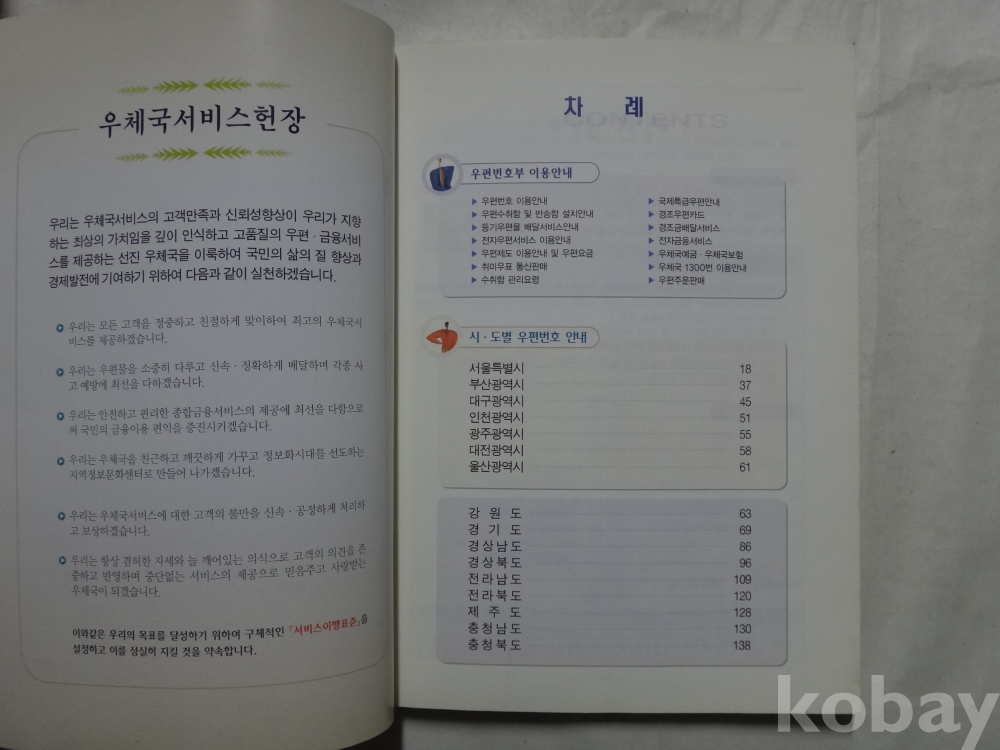 우체국서비스헌장
우리는 우체국서비스의 고객만족과 신뢰성향상이 우리가 지향
하는 최상의 가치임을 깊이 인식하고 고품질의 우편·금융서비
스를 제공하는 선진 우체국을 이룩하여 국민의 삶의 질 향상과
경제발전에 기여하기 위하여 다음과 같이 실천하겠습니다.
우리는 모든 고객을 정중하고 친절하게 맞이하여 최고의 우체국서
비스를 제공하겠습니다.
우리는 우편물을 소중히 다루고 신속·정확하게 배달하며 각종 사
고 예방에 최선을 다하겠습니다.
우리는 안전하고 편리한 종합금융서비스의 제공에 최선을 다함으로
써 국민의 금융이용 편익을 증진시키겠습니다.
우리는 우체국을 친근하고 깨끗하게 가꾸고 정보화시대를 선도하는
지역정보문화센터로 만들어 나가겠습니다.
우리는 우체국서비스에 대한 고객의 불만을 신속·공정하게 처리하
고 보상하겠습니다.
우리는 항상 겸허한 자세와 늘 깨어있는 의식으로 고객의 의견을 존
중하고 반영하며 중단없는 서비스의 제공으로 믿음주고 사랑받는
우체국이 되겠습니다.
이와같은 우리의 목표를 달성하기 위하여 구체적인 「서비스이행표준」을
설정하고 이를 성실히 지킬 것을 약속합니다.
차 례
CONTENTS
우편번호부 이용안내
▶ 우편번호 이용안내
▶ 우편수취함 및 반송함 설치안내
▶ 등기우편물 배달서비스안내
▶ 전자우편서비스 이용안내
▶ 우편제도 이용안내 및 우편요금
▶ 취미우표 통신판매
▶ 수취함 관리요령
▶ 국제특급우편안내
▶ 경조우편카드
▶ 경조금배달서비스
▶ 전자금융서비스
▶ 우체국예금·우체국보험
▶ 우체국 1300번 이용안내
▶ 우편주문판매
시·도별 우편번호 안내
서울특별시 18
부산광역시 37
대구광역시 45
인천광역시 51
광주광역시 55
대전광역시 58
울산광역시 61
강 원 도 63
경 기 도 69
경상남도 86
경상북도 96
전라남도 109
전라북도 120
제 주 도 128
충청남도 130
충청북도 138
kobay